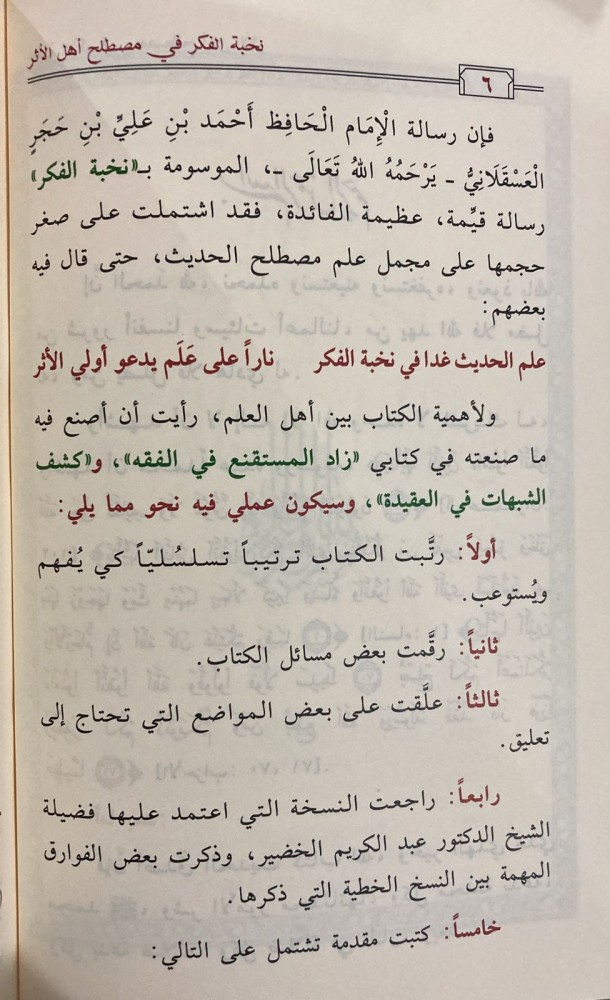 نخبة الفكر في مصطلح أهل الأثر
٦
فإن رسالة الْإِمَام الْحَافِظ أَحْمَد بْنِ عَلِيِّ بْنِ حَجَرٍ
الْعَسْقَلَانِيُّ ـ يَرْحَمُهُ اللهُ تَعَالَى ـ، الموسومة بـ«نخبة الفكر»
رسالة قيِّمة، عظيمة الفائدة، فقد اشتملت على صغر
حجمها على مجمل علم مصطلح الحديث، حتى قال فيه
بعضهم:
علم الحديث غدا في نخبة الفكر ناراً على عَلَم يدعو أولي الأثر
ولأهمية الكتاب بين أهل العلم، رأيت أن أصنع فيه
ما صنعته في كتابي «زاد المستقنع في الفقه»، و«كشف
الشبهات في العقيدة»، وسيكون عملي فيه نحو مما يلي:
أولاً: رتَّبت الكتاب ترتيباً تسلسُليّاً كي يُفهم
ويُستوعب.
ثانياً: رقَّمت بعض مسائل الكتاب.
ثالثاً: علَّقت على بعض المواضع التي تحتاج إلى
تعليق.
رابعاً: راجعت النسخة التي اعتمد عليها فضيلة
الشيخ الدكتور عبد الكريم الخضير، وذكرت بعض الفوارق
المهمة بين النسخ الخطية التي ذكرها.
خامساً: كتبت مقدمة تشتمل على التالي: